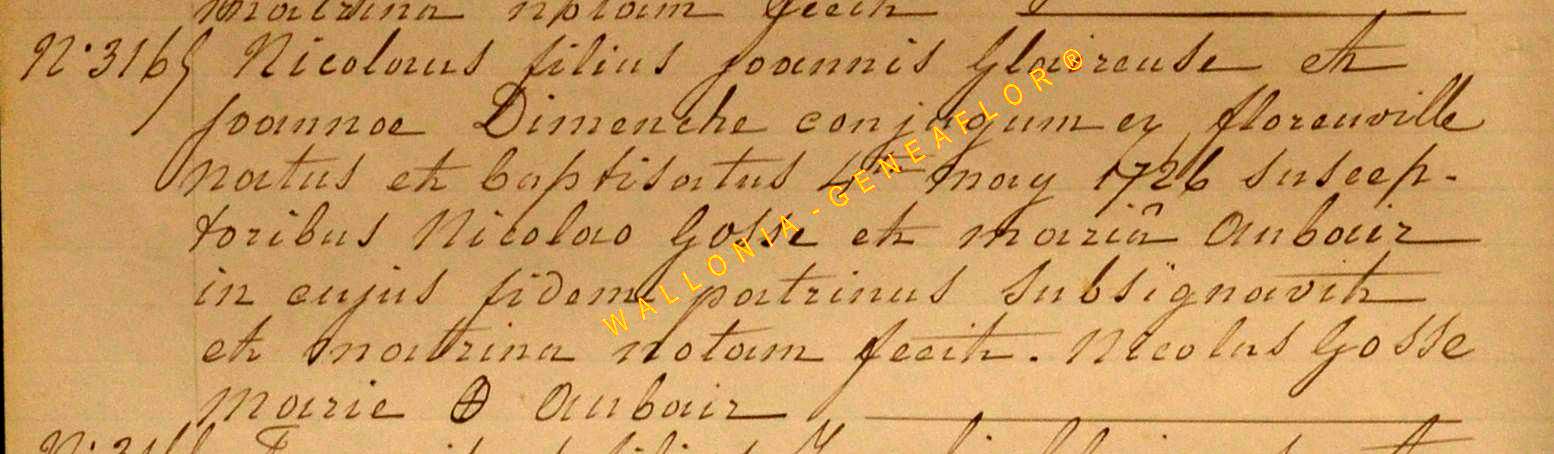 matrina notam fecit
N° 3165 Nicolaus filius joannis Glaireuse et
joannae Dimenche conjugum ex florenville
natus et baptisatus 4ta may 1726 suscep-
toribus Nicolao Gosse et mariâ Aubair
in cujus fidem patrinus subsignavit
et matrina notam fecit. Nicolas Gosse
Marie Aubair
WALLONIA-GENEAFLOR®